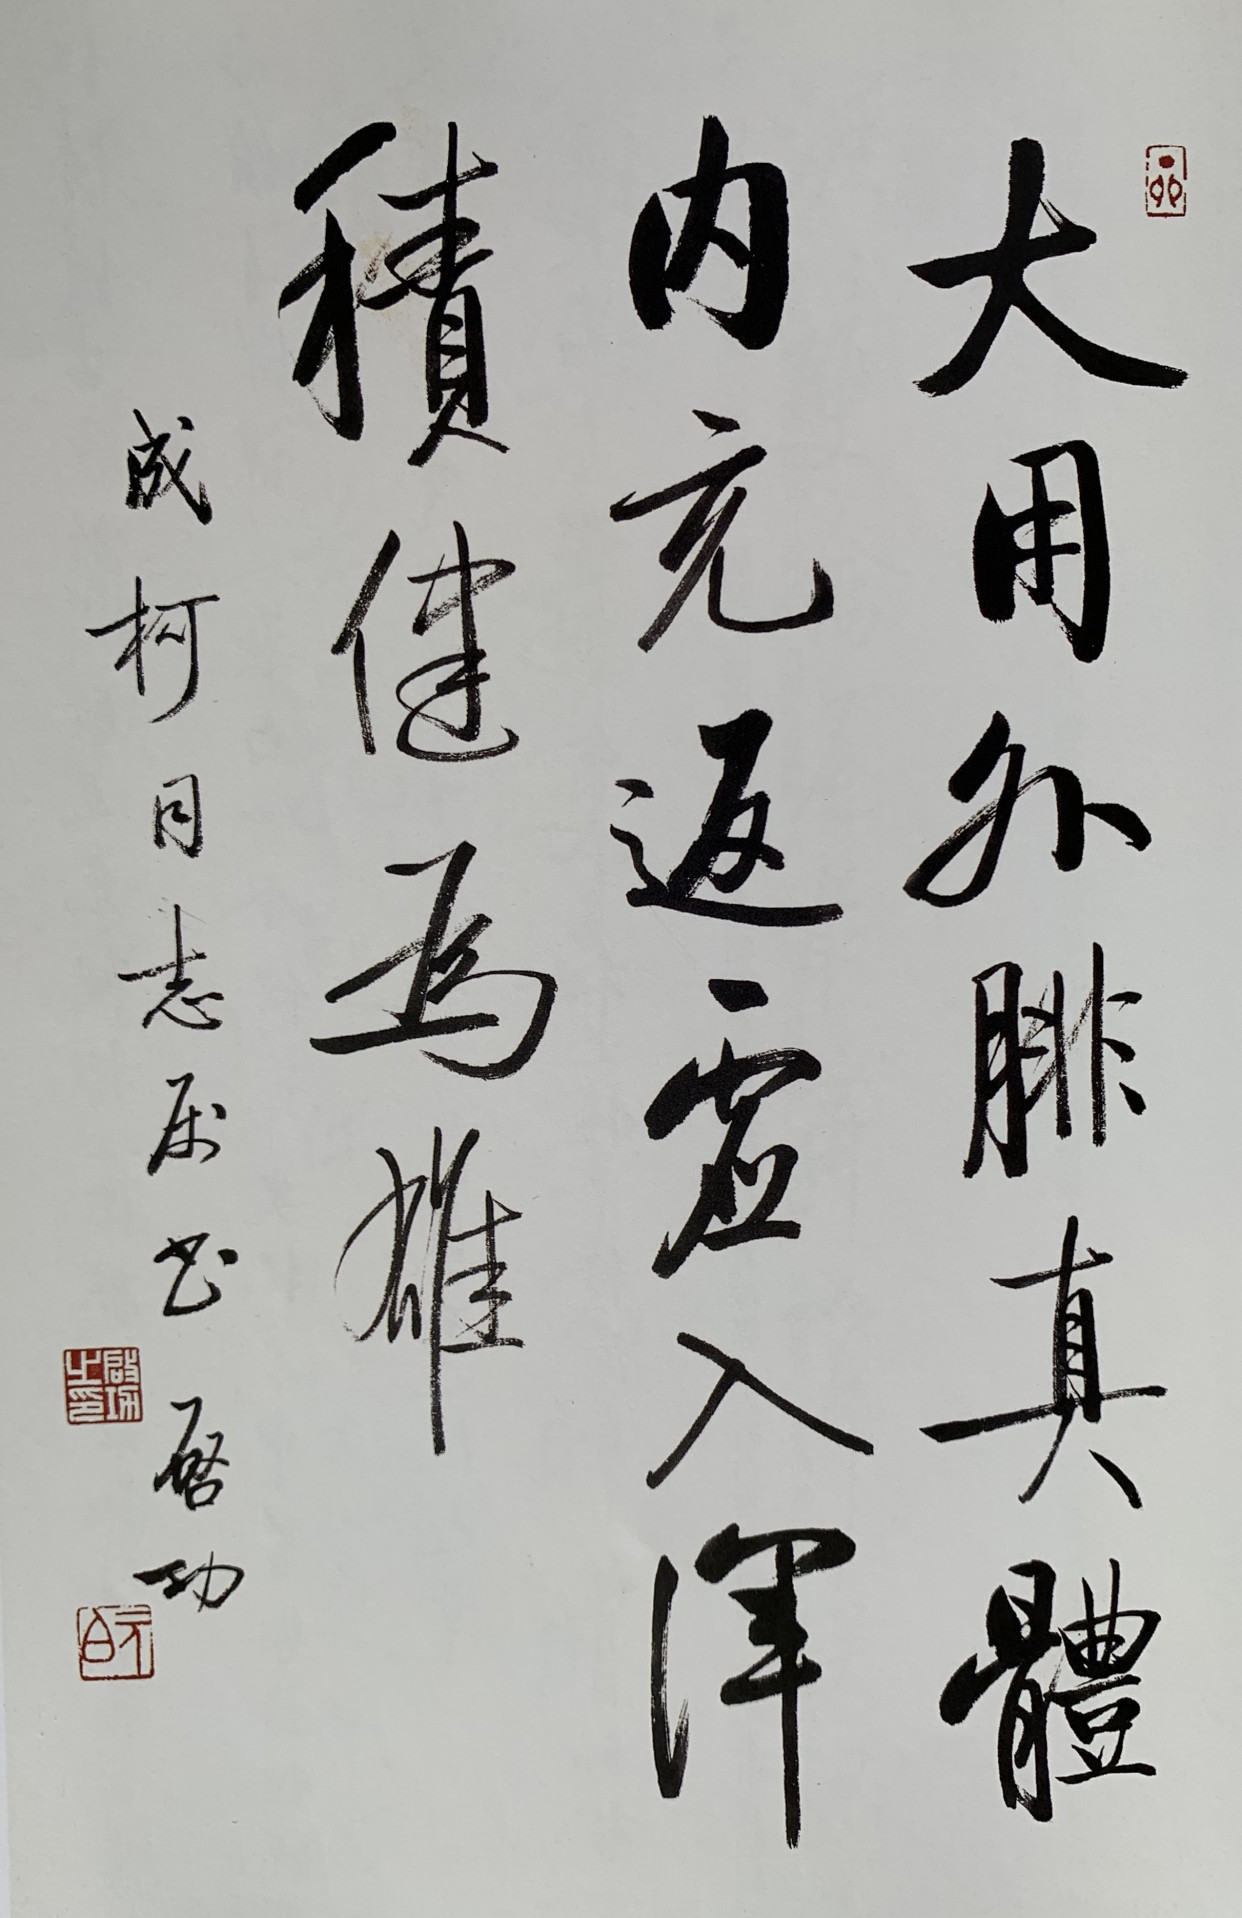 大用外腓真體
内充返虛入渾
積健為雄
成柯同志属书 启功
啟功之印
元白